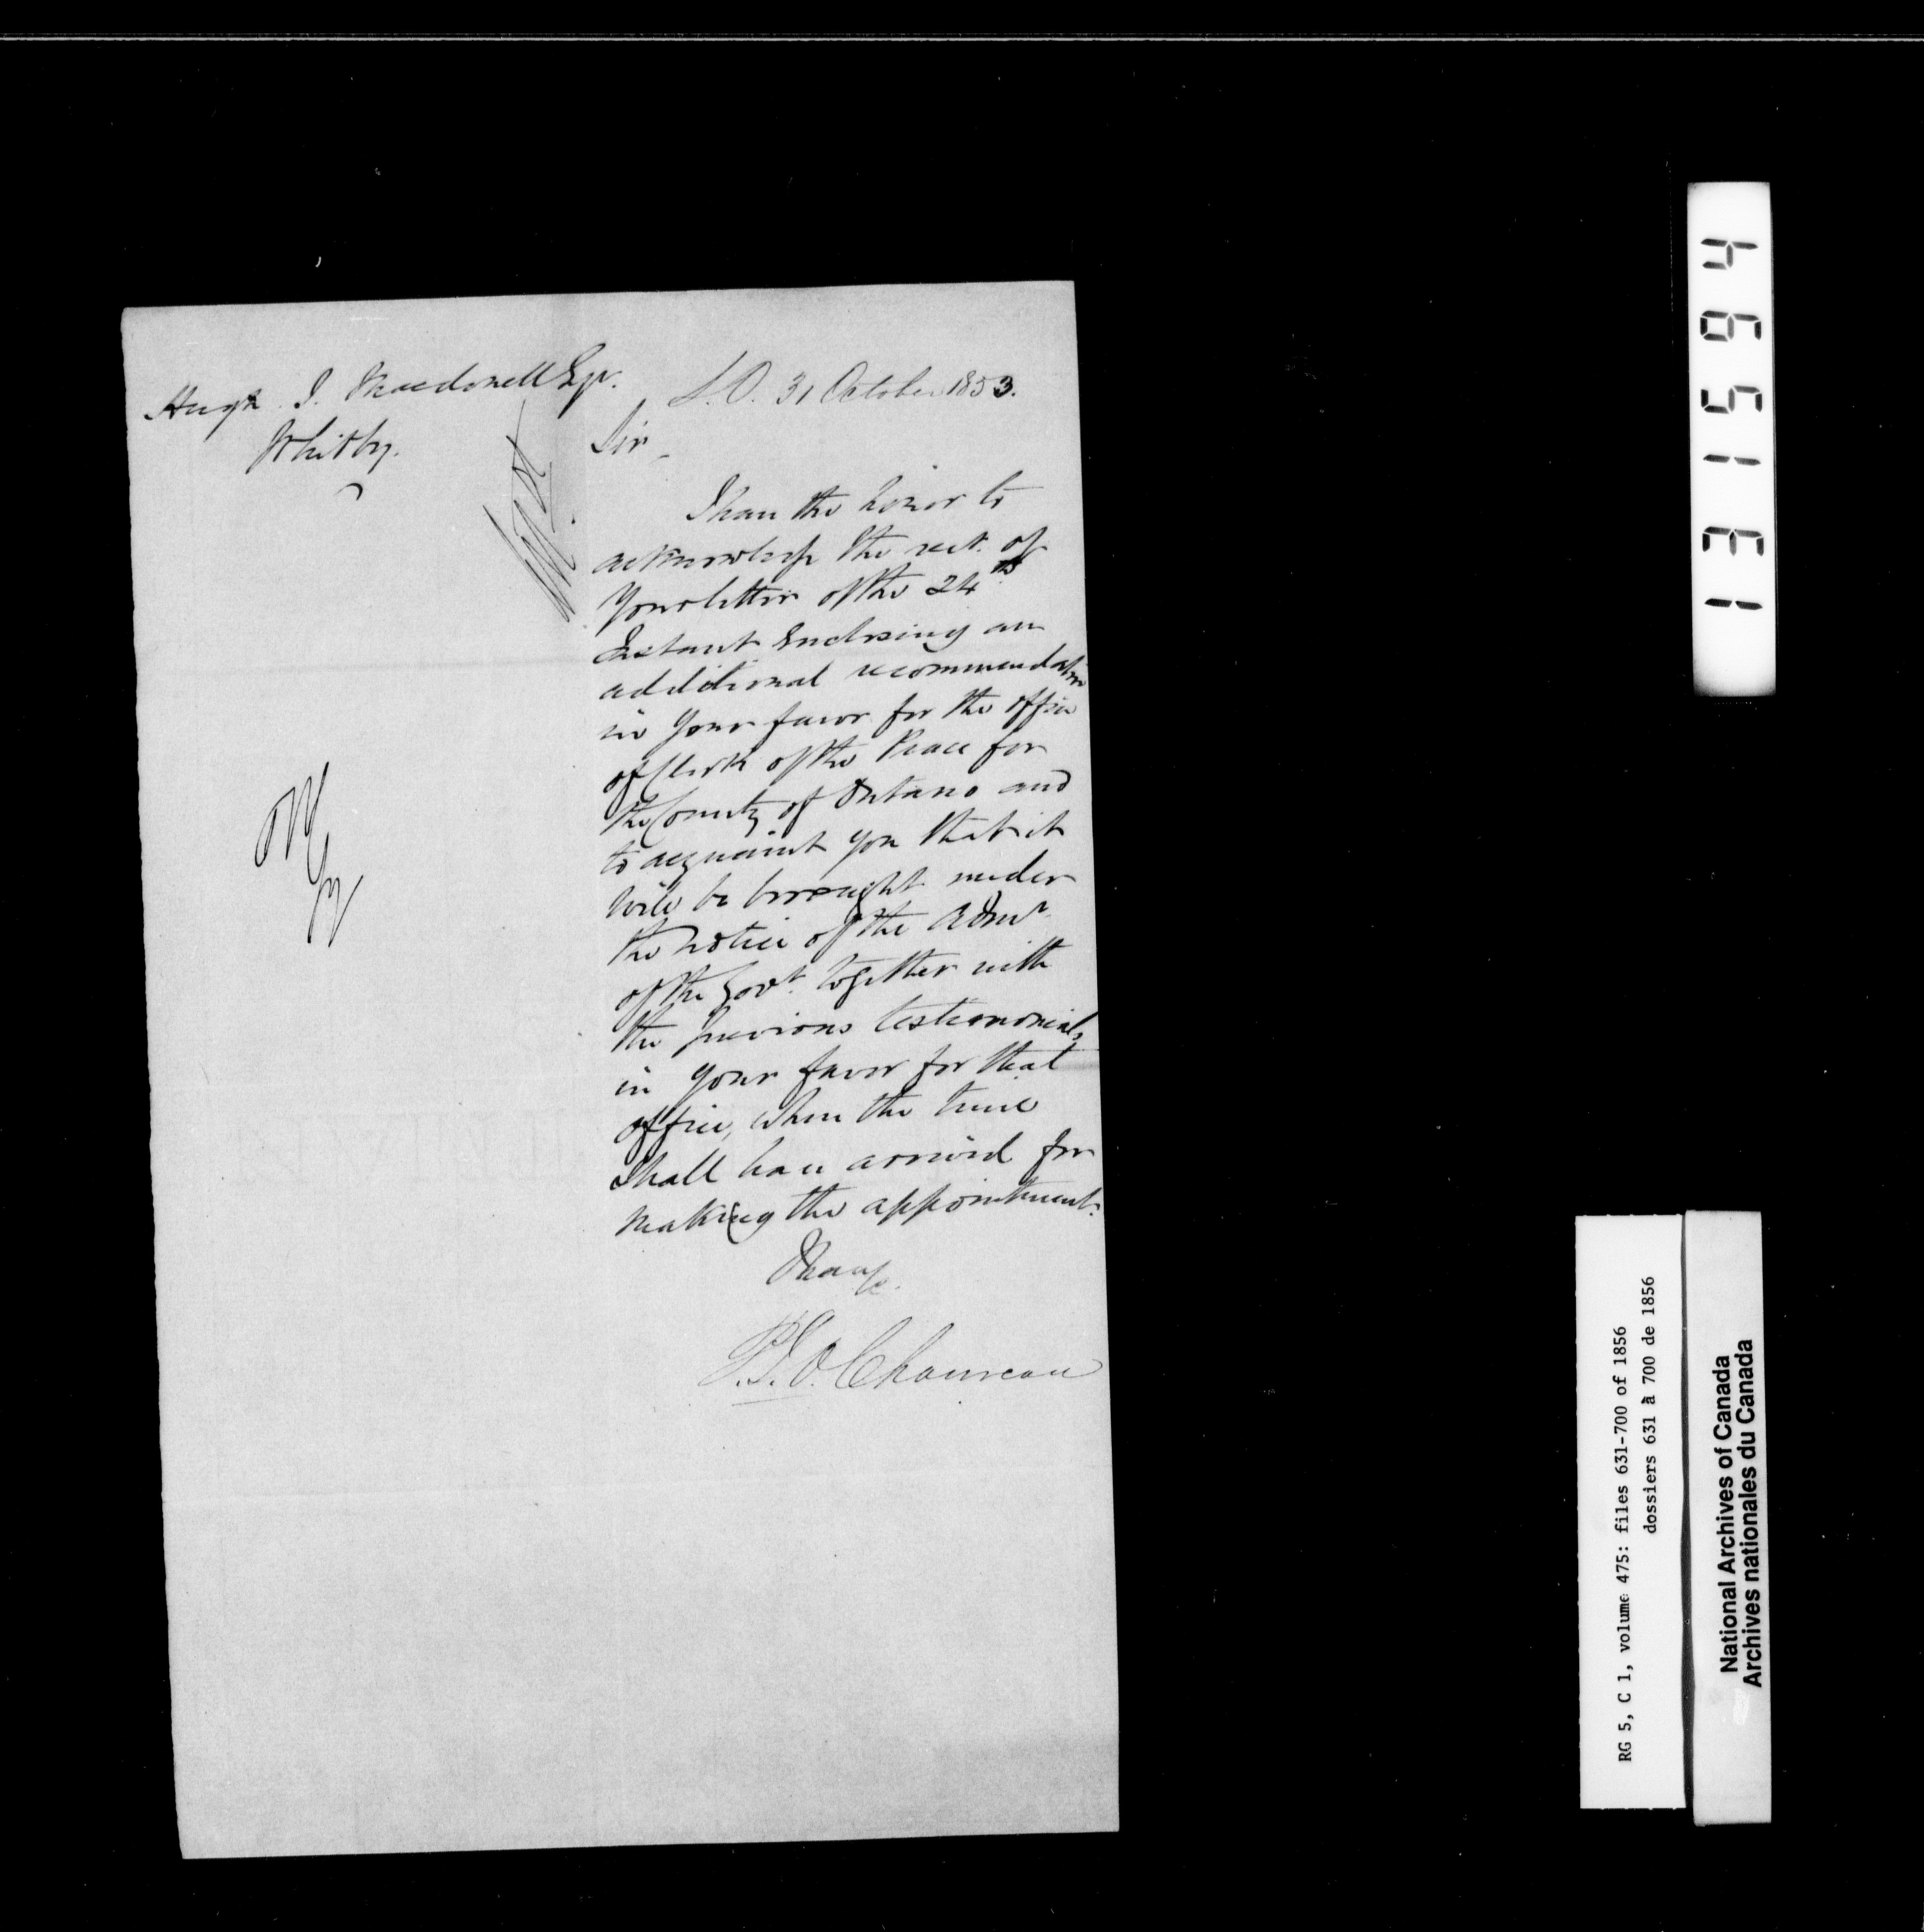 Hugh J. Macdonell Esqr.
Whitby.
S.O. 31 October 1853.
Sir,
I have the honor to
acknowledge the rect. of
your letter of the 24th
Instant Enclosing an
additional recommendation
in your favor for the office
of Clerk of the Peace for
the County of Ontario and
to acquaint you that it
will be brought under
the notice of the Admr
of the Govt. together with
the previous testimonials
in your favor for that
office, when the time
shall have arrived for
making the appointment.
I have &c.
P.J.O. Chauveau
131564
RG 5, C 1, volume 475: files 631-700 of 1856
dossiers 631 à 700 de 1856
National Archives of Canada
Archives nationales du Canada